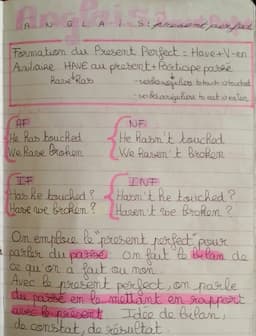 ANGLAIS: present perfect
Formation du Present Perfect = Have+V-en
Auxiliaire HAVE au présent + Participe passé
Have Has
- verbes réguliers to touch touched
- verbes irréguliers to eat eaten
AF
He has touched
We have Broken
NF
He hasn't touched
We haven't Broken
IF
Has he touched?
Have we broken?
INF
Hasn't he touched?
Haven't we Broken?
On emploie le "present perfect" pour
parler du passé. On fait le bilan de
ce qu'on a fait ou non.
Avec le present perfect, on parle
du passé en le mettant en rapport
avec le présent. Idée de bilan,
de constat, de résultat.